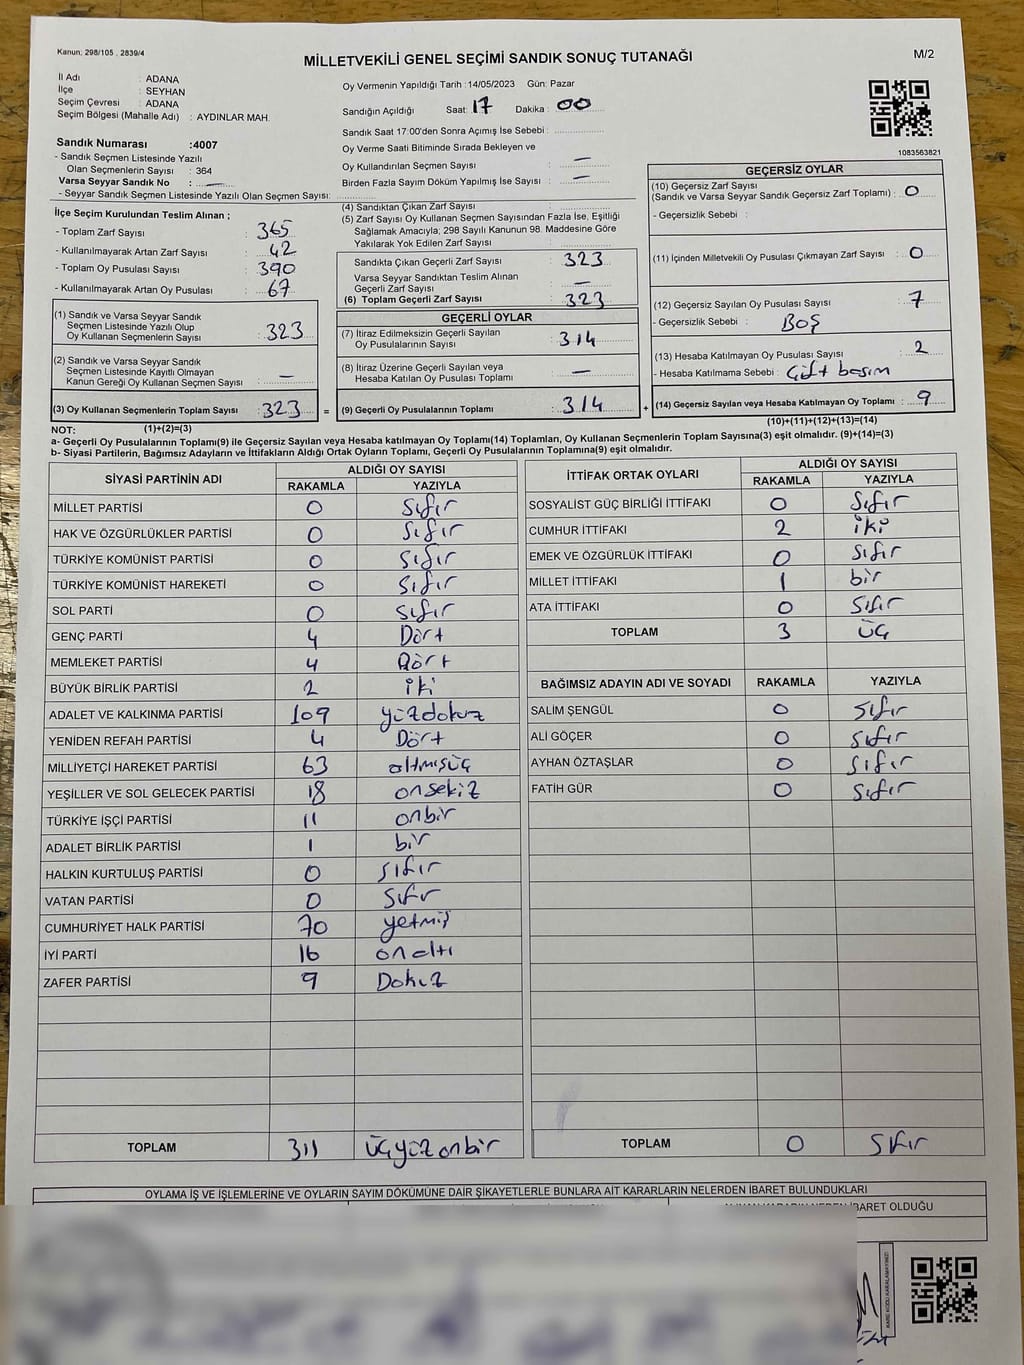 Kanun: 298/105 , 2839/4
MİLLETVEKİLİ GENEL SEÇİMİ SANDIK SONUÇ TUTANAĞI
M/2
İl Adı : ADANA
İlçe : SEYHAN
Seçim Çevresi : ADANA
Seçim Bölgesi (Mahalle Adı) : AYDINLAR MAH.
Oy Vermenin Yapıldığı Tarih :14/05/2023 Gün: Pazar
Sandığın Açıldığı Saat: 17 Dakika : 00
Sandık Saat 17:00'den Sonra Açımış İse Sebebi :
Oy Verme Saati Bitiminde Sırada Bekleyen ve
Oy Kullandırılan Seçmen Sayısı : —
Birden Fazla Sayım Döküm Yapılmış İse Sayısı : —
1083563821
Sandık Numarası :4007
- Sandık Seçmen Listesinde Yazılı
Olan Seçmenlerin Sayısı : 364
Varsa Seyyar Sandık No : —
- Seyyar Sandık Seçmen Listesinde Yazılı Olan Seçmen Sayısı:
İlçe Seçim Kurulundan Teslim Alınan ;
- Toplam Zarf Sayısı : 365
- Kullanılmayarak Artan Zarf Sayısı : 42
- Toplam Oy Pusulası Sayısı : 390
- Kullanılmayarak Artan Oy Pusulası : 67
(1) Sandık ve Varsa Seyyar Sandık
Seçmen Listesinde Yazılı Olup
Oy Kullanan Seçmenlerin Sayısı : 323
(2) Sandık ve Varsa Seyyar Sandık
Seçmen Listesinde Kayıtlı Olmayan
Kanun Gereği Oy Kullanan Seçmen Sayısı : —
(3) Oy Kullanan Seçmenlerin Toplam Sayısı : 323 =
(4) Sandıktan Çıkan Zarf Sayısı :
(5) Zarf Sayısı Oy Kullanan Seçmen Sayısından Fazla İse, Eşitliği
Sağlamak Amacıyla; 298 Sayılı Kanunun 98. Maddesine Göre
Yakılarak Yok Edilen Zarf Sayısı :
Sandıkta Çıkan Geçerli Zarf Sayısı : 323
Varsa Seyyar Sandıktan Teslim Alınan
Geçerli Zarf Sayısı : —
(6) Toplam Geçerli Zarf Sayısı : 323
GEÇERLİ OYLAR
(7) İtiraz Edilmeksizin Geçerli Sayılan
Oy Pusulalarının Sayısı : 314
(8) İtiraz Üzerine Geçerli Sayılan veya
Hesaba Katılan Oy Pusulası Toplamı : —
(9) Geçerli Oy Pusulalarının Toplamı : 314 +
GEÇERSİZ OYLAR
(10) Geçersiz Zarf Sayısı
(Sandık ve Varsa Seyyar Sandık Geçersiz Zarf Toplamı) : 0
- Geçersizlik Sebebi :
(11) İçinden Milletvekili Oy Pusulası Çıkmayan Zarf Sayısı : 0
(12) Geçersiz Sayılan Oy Pusulası Sayısı : 7
- Geçersizlik Sebebi : Boş
(13) Hesaba Katılmayan Oy Pusulası Sayısı : 2
- Hesaba Katılmama Sebebi : Çift basım
(14) Geçersiz Sayılan veya Hesaba Katılmayan Oy Toplamı : 9
NOT: (1)+(2)=(3) (10)+(11)+(12)+(13)=(14)
a- Geçerli Oy Pusulalarının Toplamı(9) ile Geçersiz Sayılan veya Hesaba katılmayan Oy Toplamı(14) Toplamları, Oy Kullanan Seçmenlerin Toplam Sayısına(3) eşit olmalıdır. (9)+(14)=(3)
b- Siyasi Partilerin, Bağımsız Adayların ve İttifakların Aldığı Oyların Toplamı, Geçerli Oy Pusulalarının Toplamına(9) eşit olmalıdır.
SİYASİ PARTİNİN ADI ALDIĞI OY SAYISI
RAKAMLA YAZIYLA
MİLLET PARTİSİ 0 sıfır
HAK VE ÖZGÜRLÜKLER PARTİSİ 0 sıfır
TÜRKİYE KOMÜNİST PARTİSİ 0 sıfır
TÜRKİYE KOMÜNİST HAREKETİ 0 sıfır
SOL PARTİ 0 sıfır
GENÇ PARTİ 4 Dört
MEMLEKET PARTİSİ 4 Dört
BÜYÜK BİRLİK PARTİSİ 2 iki
ADALET VE KALKINMA PARTİSİ 109 yüzdokuz
YENİDEN REFAH PARTİSİ 4 Dört
MİLLİYETÇİ HAREKET PARTİSİ 63 altmışüç
YEŞİLLER VE SOL GELECEK PARTİSİ 18 onsekiz
TÜRKİYE İŞÇİ PARTİSİ 11 onbir
ADALET BİRLİK PARTİSİ 1 bir
HALKIN KURTULUŞ PARTİSİ 0 sıfır
VATAN PARTİSİ 0 sıfır
CUMHURİYET HALK PARTİSİ 70 yetmiş
İYİ PARTİ 16 onaltı
ZAFER PARTİSİ 9 Dokuz
TOPLAM 311 üçyüzonbir
İTTİFAK ORTAK OYLARI ALDIĞI OY SAYISI
RAKAMLA YAZIYLA
SOSYALİST GÜÇ BİRLİĞİ İTTİFAKI 0 sıfır
CUMHUR İTTİFAKI 2 iki
EMEK VE ÖZGÜRLÜK İTTİFAKI 0 sıfır
MİLLET İTTİFAKI 1 bir
ATA İTTİFAKI 0 sıfır
TOPLAM 3 üç
BAĞIMSIZ ADAYIN ADI VE SOYADI RAKAMLA YAZIYLA
SALİM ŞENGÜL 0 sıfır
ALİ GÖÇER 0 sıfır
AYHAN ÖZTAŞLAR 0 sıfır
FATİH GÜR 0 sıfır
TOPLAM 0 sıfır
OYLAMA İŞ VE İŞLEMLERİNE VE OYLARIN SAYIM DÖKÜMÜNE DAİR ŞİKAYETLERLE BUNLARA AİT KARARLARIN NELERDEN İBARET BULUNDUKLARI
İBARET OLDUĞU
KARE KODU KARALAMAYINIZ!